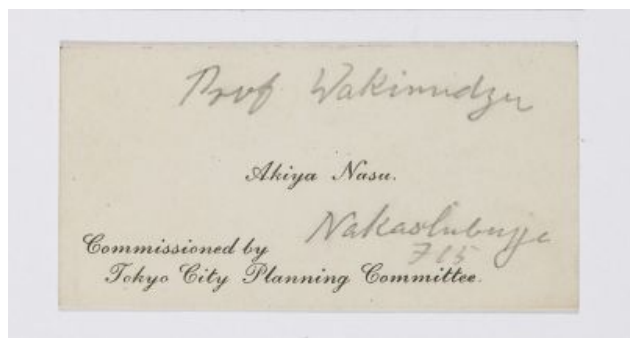 Prof Wakimidzu
Akiya Nasu.
715
Commissioned by
Tokyo City Planning Committee.